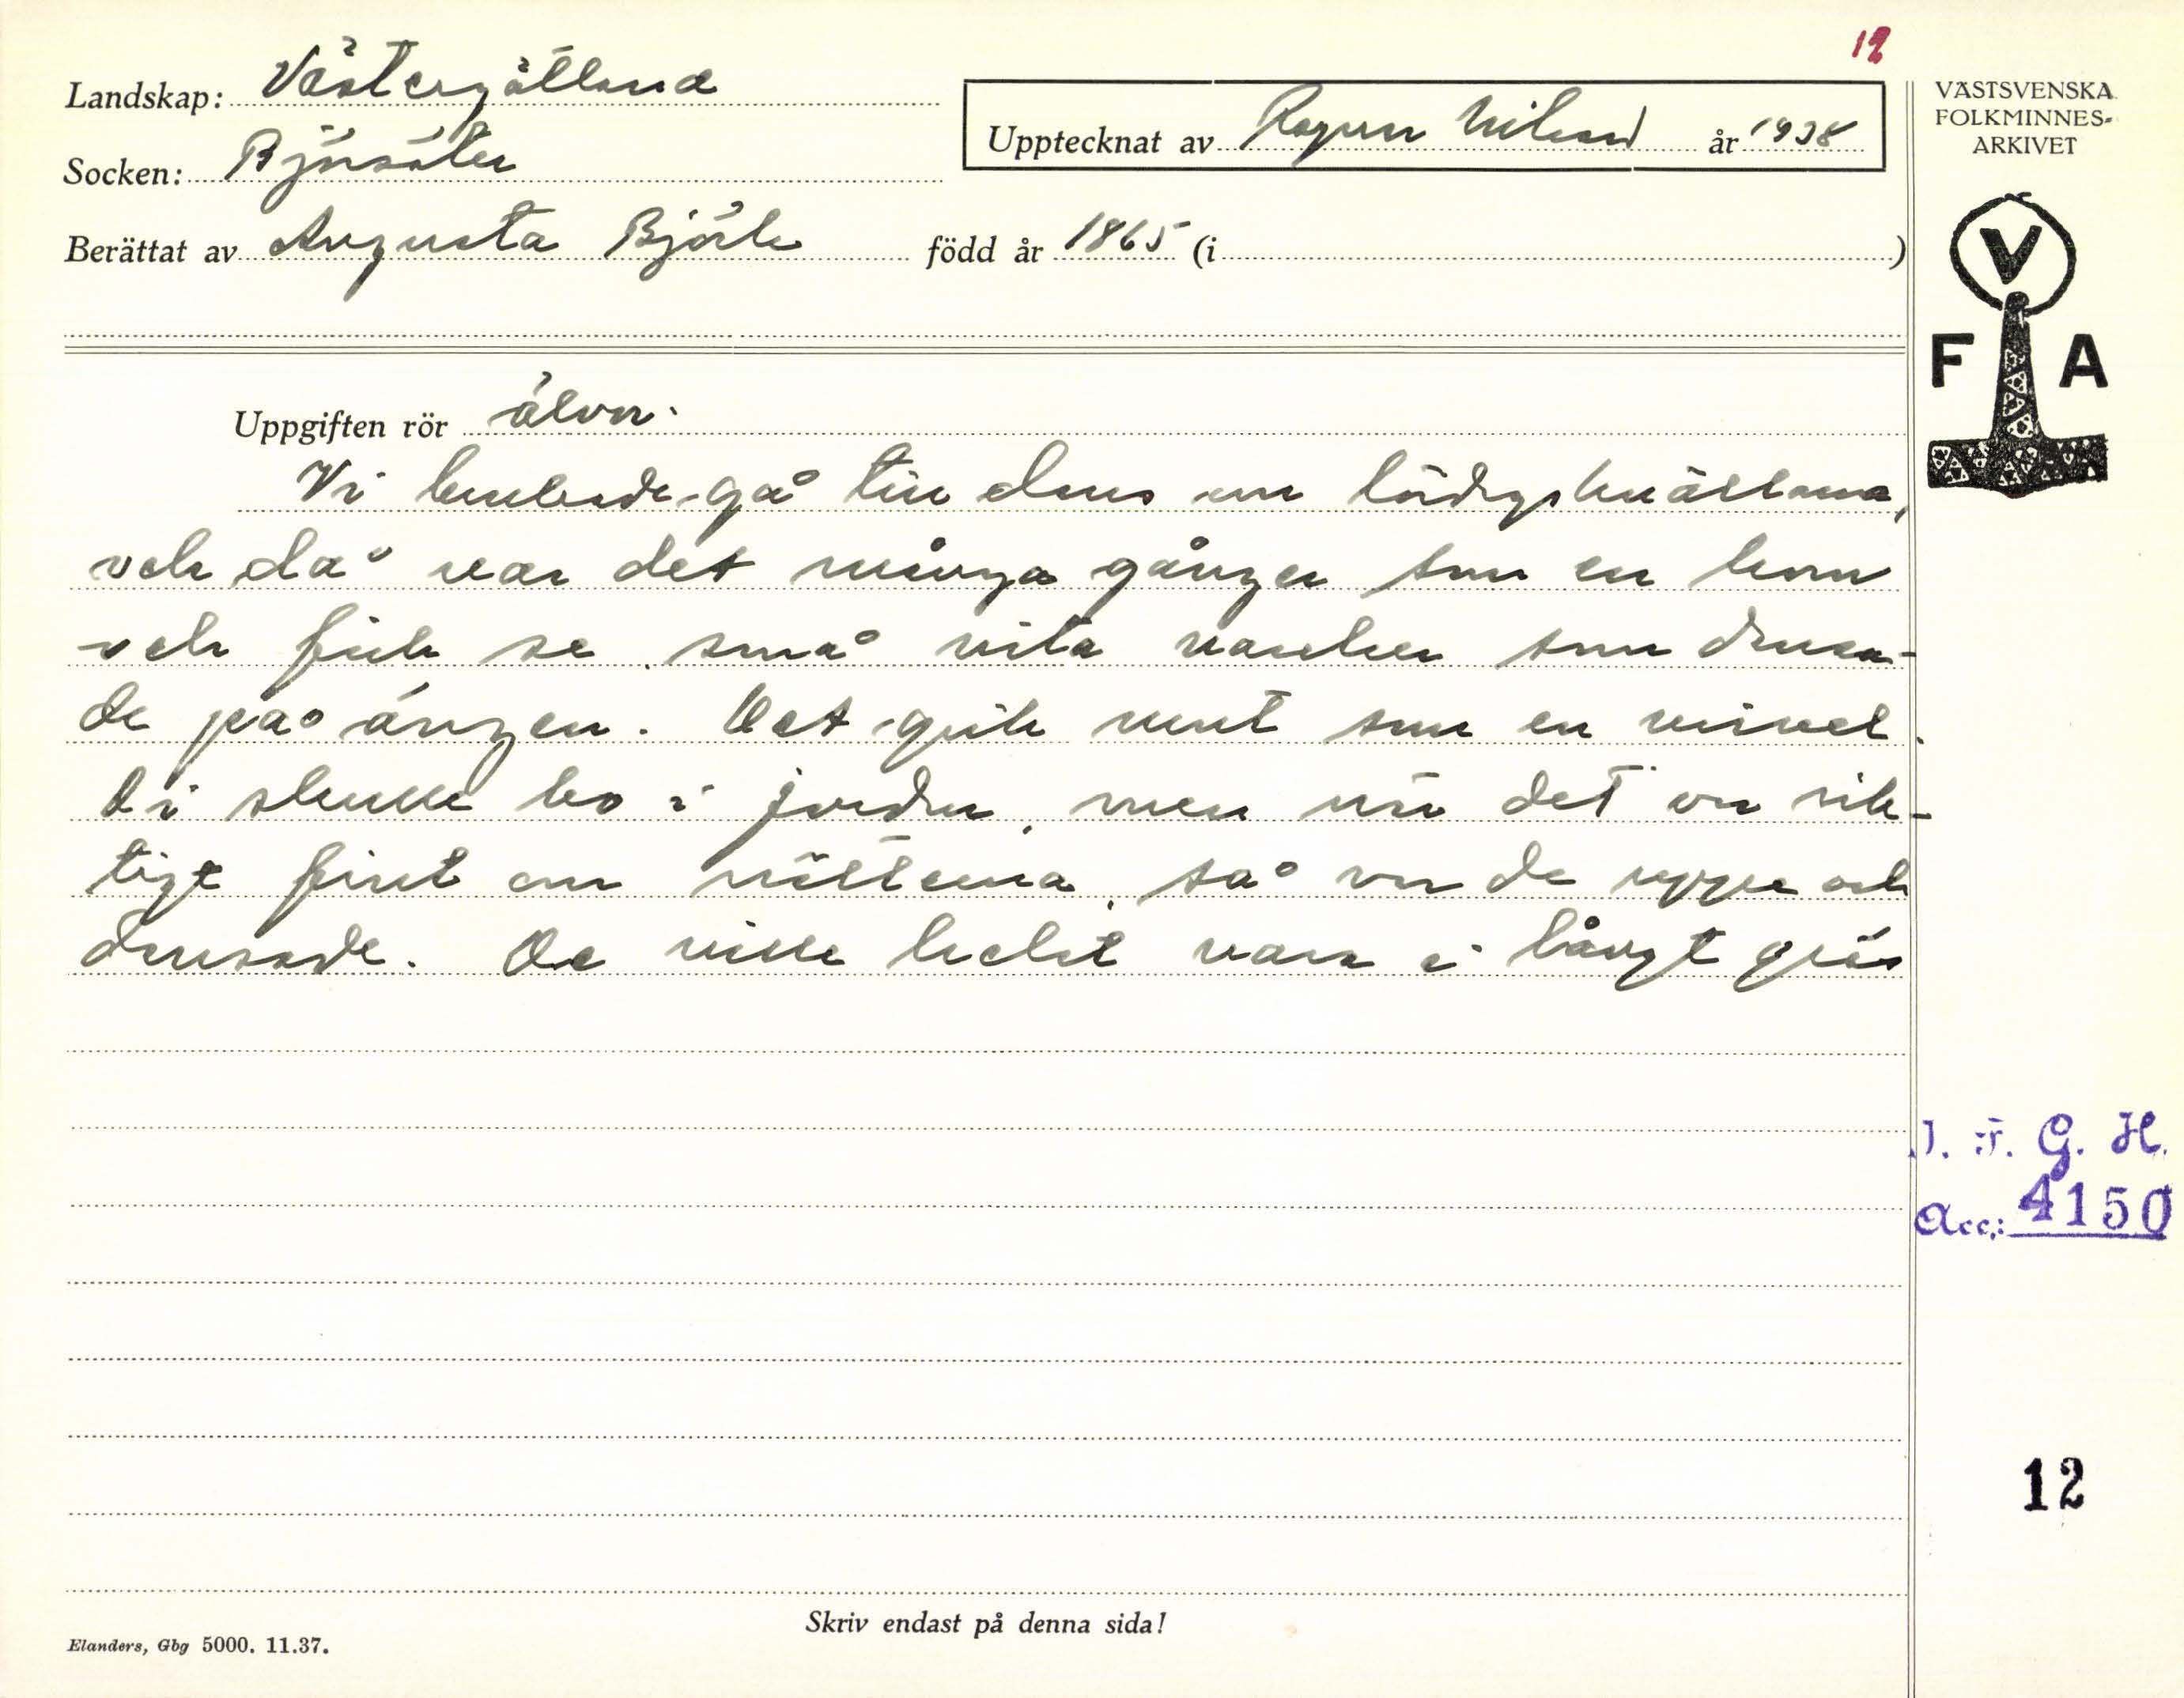 12
Landskap: Västergötland
Socken: Björsäter
Upptecknat av Ragnar Nilsson år 1938
Berättat av Augusta Björk född år 1865 (i )
VÄSTSVENSKA
FOLKMINNES-
ARKIVET
V
F A
Uppgiften rör älvor.
Vi brukade gå till dans om lördagskvällarna,
och då var det många gånger som en kom
och fick se små vita varelser som dansa-
de på ängen. Det gick runt som en virvel.
Di skulle bo i jorden, men när det var rik-
tigt fint om nätterna, så var de uppe och
dansade. De ville helst vara i långt gräs
I. F. G. H.
Acc.: 4150
12
Skriv endast på denna sida!
Elanders, Gbg 5000. 11.37.